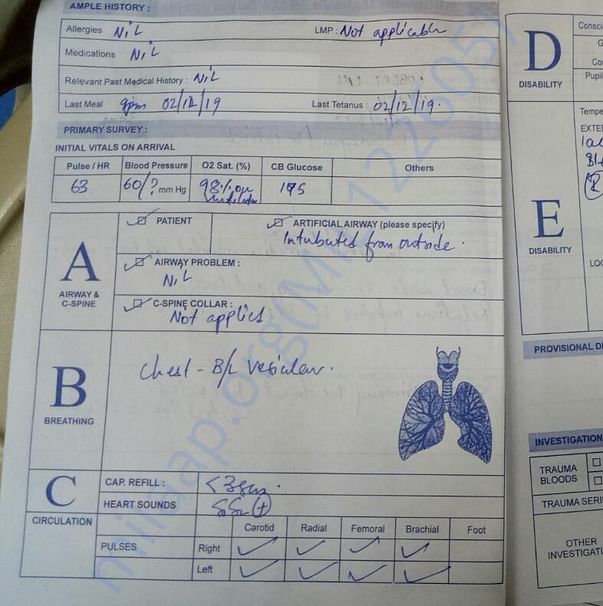 AMPLE HISTORY :
Allergies NiL LMP : Not applicable
Medications NiL
Relevant Past Medical History : NiL
Last Meal 9pm 02/12/19 Last Tetanus : 02/12/19.
PRIMARY SURVEY :
INITIAL VITALS ON ARRIVAL
Pulse / HR Blood Pressure O2 Sat. (%) CB Glucose Others
63 60/? mm Hg 98% on 195
A
AIRWAY &
C-SPINE
PATIENT
ARTIFICIAL AIRWAY (please specify)
Intubated from outside.
AIRWAY PROBLEM :
NiL
C-SPINE COLLAR :
Not applied
B
BREATHING
Chest - B/L vesicular.
C
CIRCULATION
CAP. REFILL : <3sec.
HEART SOUNDS S1S2 (+)
Carotid Radial Femoral Brachial Foot
PULSES
Right ✓ ✓ ✓ ✓
Left ✓ ✓ ✓ ✓
D
DISABILITY
Consci
Co
Pupi
E
DISABILITY
Tempe
EXTE
LOC
PROVISIONAL D
INVESTIGATION
TRAUMA
BLOODS
TRAUMA SERI
OTHER
INVESTIGATI